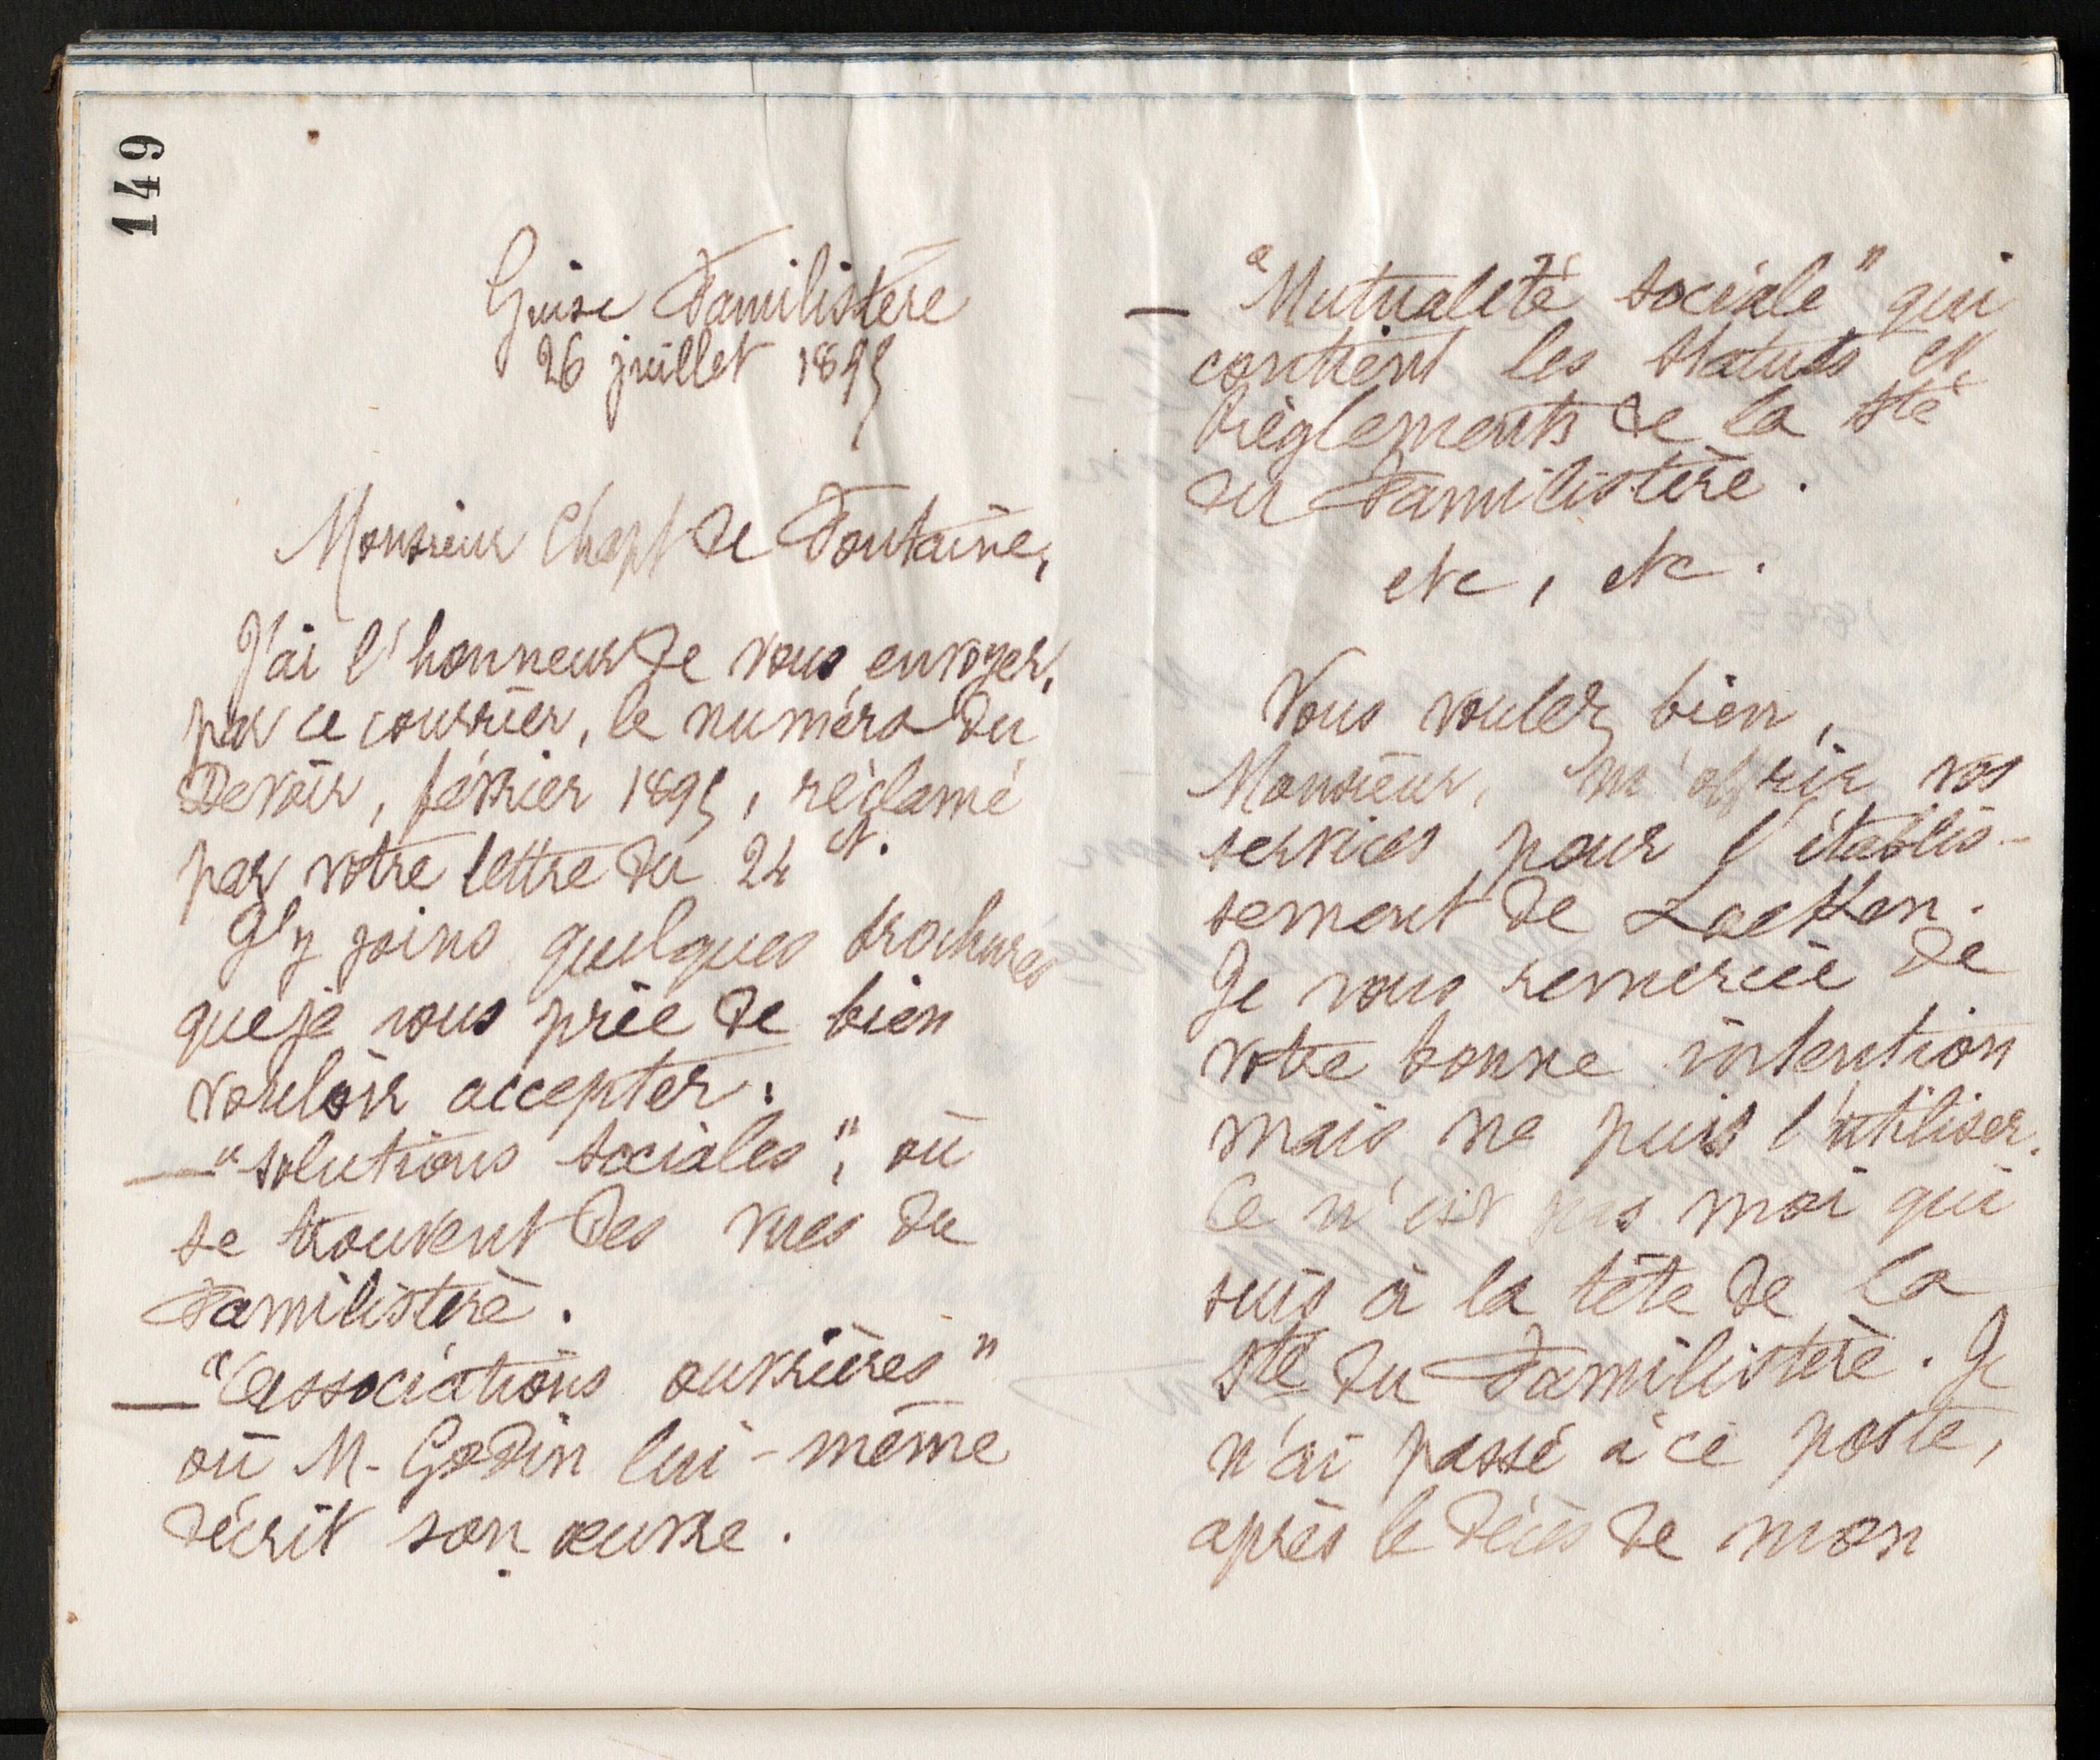 149
Guise Familistère
26 juillet 1895
Monsieur Chapt de Fontaine,
J'ai l'honneur de vous envoyer,
par ce courrier, le numéro du
Devoir, février 1895, réclamé
par votre lettre du 24 ct.
J'y joins quelques brochures
que je vous prie de bien
vouloir accepter :
— "solutions sociales", où
se trouvent des vues du
Familistère.
— "associations ouvrières"
où M. Godin lui-même
décrit son œuvre.
— "Mutualité sociale" qui
contient les statuts et
règlements de la Sté
du Familistère.
etc, etc.
Vous voulez bien,
Monsieur, m'offrir vos
services pour l'établis-
sement de Laeken.
Je vous remercie de
votre bonne intention
mais ne puis l'utiliser.
Ce n'est pas moi qui
suis à la tête de la
Sté du Familistère. Je
n'ai passé à ce poste,
après le décès de mon